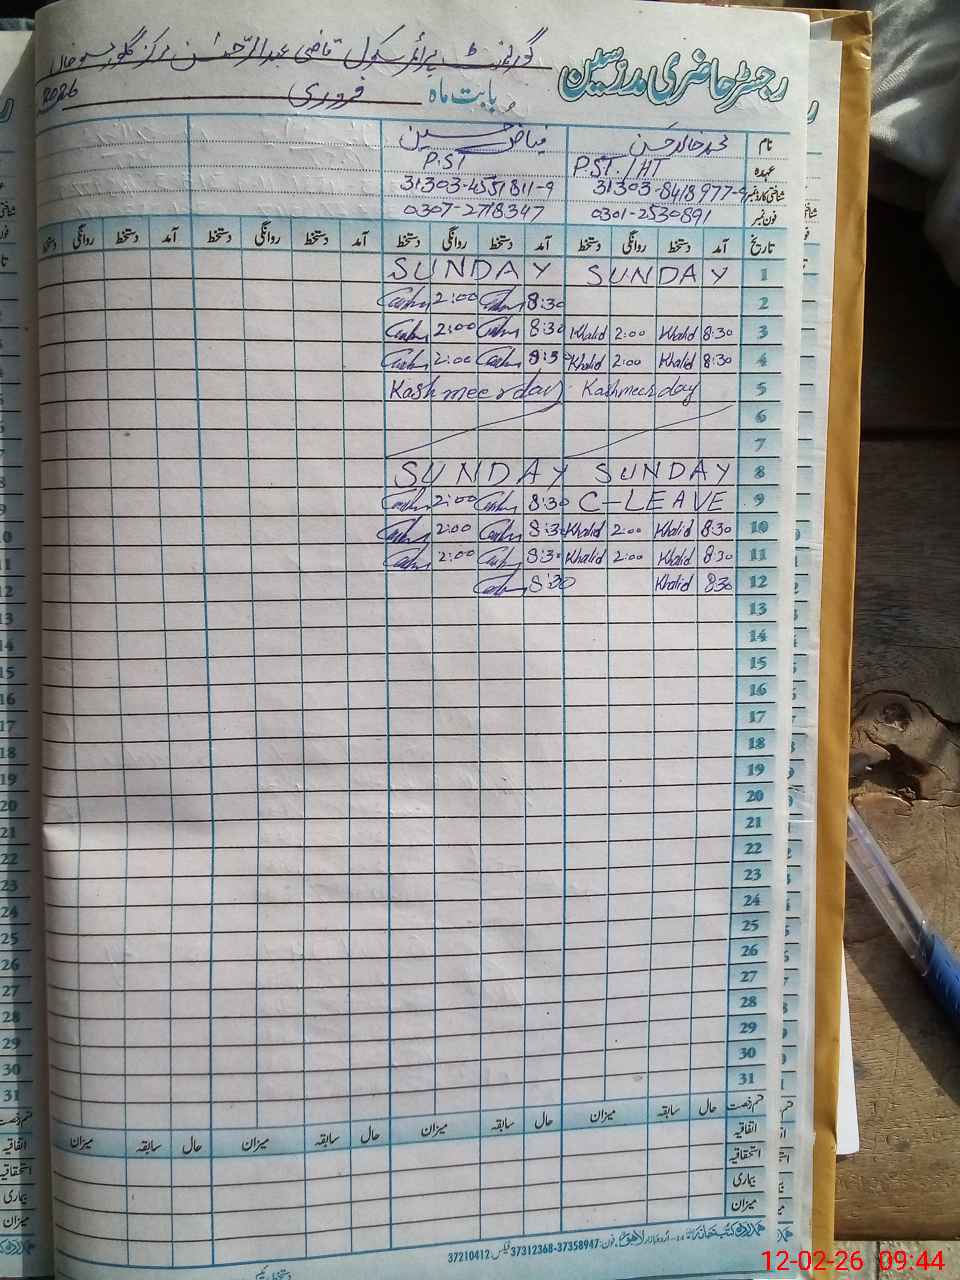 رجسٹر حاضری مدرسین گورنمنٹ پرائمری سکول قاضی عبدالرحمٰن مرکز
بابت ماہ فروری 2026
نام محمد خالد حسن فیاض حسین
عہدہ P.ST./HT P.ST
شناختی کارڈ نمبر 31303-8418977-9 31303-4551811-9
فون نمبر 0301-2530891 0307-2718347
تاریخ آمد دستخط روانگی دستخط آمد دستخط روانگی دستخط آمد دستخط روانگی دستخط آمد دستخط روانگی دستخط
1 SUNDAY SUNDAY
2 8:30 2:00
3 8:30 Khalid 2:00 Khalid 8:30 2:00
4 8:30 Khalid 2:00 Khalid 8:30 2:00
5 Kashmeer day Kashmeer day
6
7
8 SUNDAY SUNDAY
9 C-LEAVE 8:30 2:00
10 8:30 Khalid 2:00 Khalid 8:30 2:00
11 8:30 Khalid 2:00 Khalid 8:30 2:00
12 8:30 Khalid 8:30
13
14
15
16
17
18
19
20
21
22
23
24
25
26
27
28
29
30
31
قسم رخصت حال سابقہ میزان حال سابقہ میزان حال سابقہ میزان حال سابقہ میزان
اتفاقیہ
استحقاقیہ
بیماری
میزان
اردو بازار لاہور فون: 37358947-37312368 فیکس 37210412
12-02-26 09:44